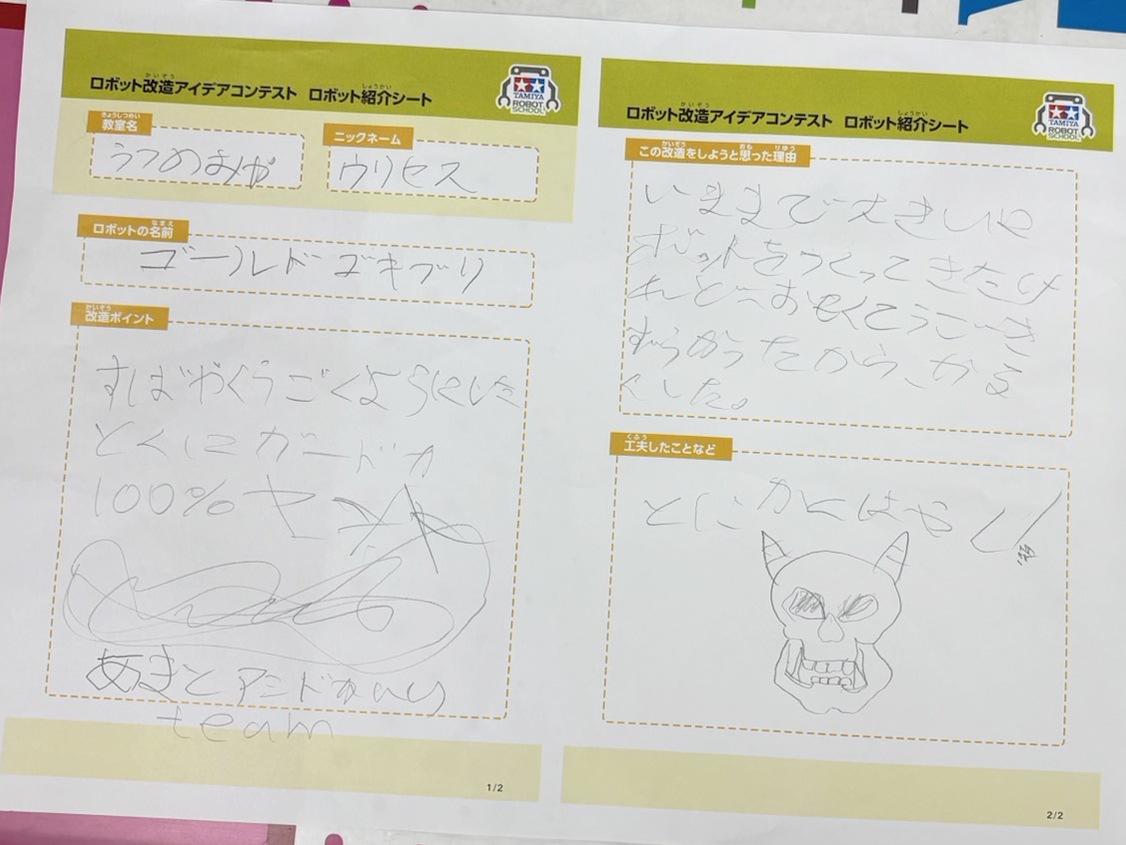 ロボット改造アイデアコンテスト ロボット紹介シート
TAMIYA
ROBOT
SCHOOL
教室名
うつのみや
ニックネーム
ウリセス
ロボットの名前
ゴールドゴキブリ
改造ポイント
すばやくうごくようにした
とくにガードが
100%
team
1/2
ロボット改造アイデアコンテスト ロボット紹介シート
TAMIYA
ROBOT
SCHOOL
この改造をしようと思った理由
いままで大きいロ
ボットをつくってきたけ
れどーおもくてうごき
ずらかったから、かる
くした。
工夫したことなど
とにかくはやい
2/2